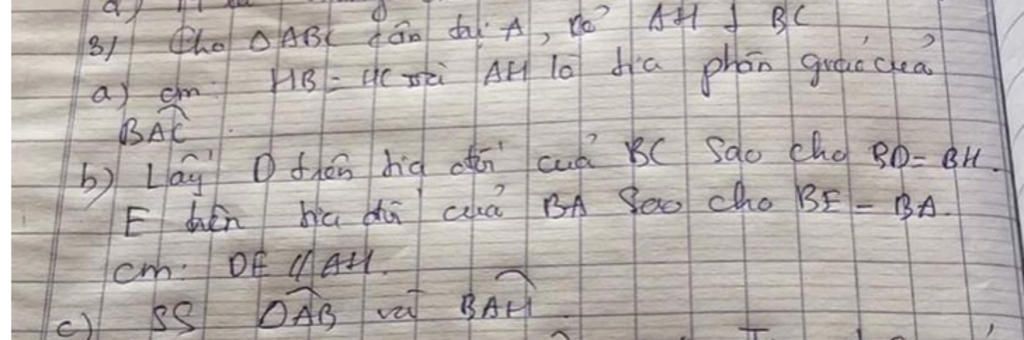 3) Cho ΔABC cân tại A, kẻ AH ⊥ BC
a) cm: HB = HC và AH là tia phân giác của
BAC.
b) Lấy D trên tia đối của BC sao cho BD = BH.
E trên tia đối của BA sao cho BE = BA.
cm: DE // AH.
c) SS DAB và BAH